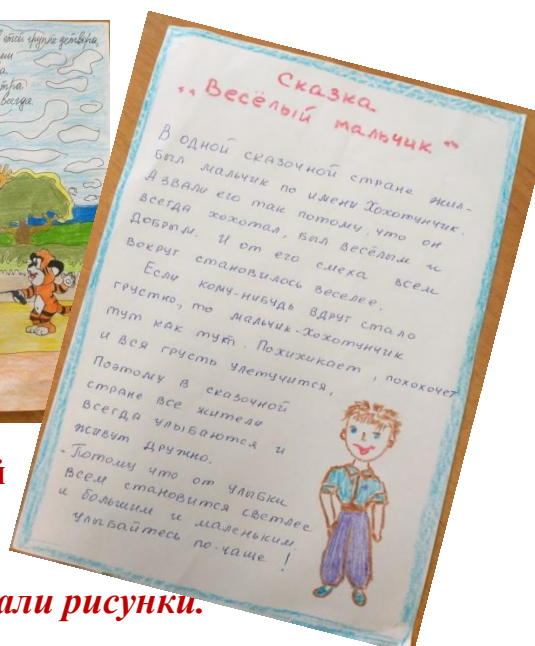 в этой группе детвора,
всегда.
Сказка
„Весёлый мальчик"
В одной сказочной стране жил-
был мальчик по имени Хохотунчик.
А звали его так потому, что он
всегда хохотал, был весёлым и
добрым. И от его смеха всем
вокруг становилось веселее.
Если кому-нибудь вдруг стало
грустно, то мальчик-Хохотунчик
тут как тут. Похихикает, похохочет
и вся грусть улетучится,
Поэтому в сказочной
стране все жители
всегда улыбаются и
живут дружно.
- Потому что от улыбки
всем становится светлее
и большим и маленьким.
Улыбайтесь по-чаще!
й
али рисунки.